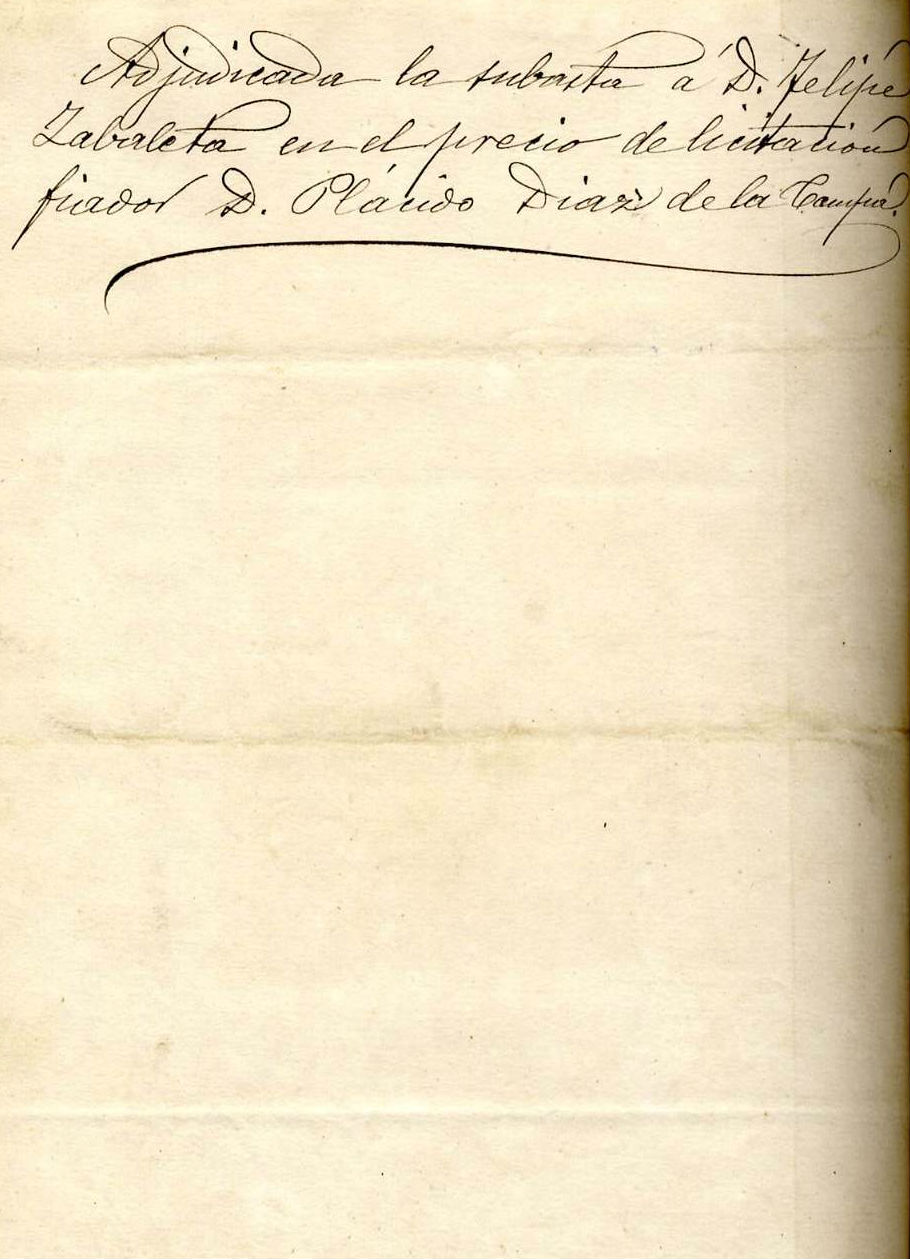 Adjudicada la subasta á D. Felipe
Zabaleta en el precio de licitación
fiador D. Plácido Diaz de la Campa.